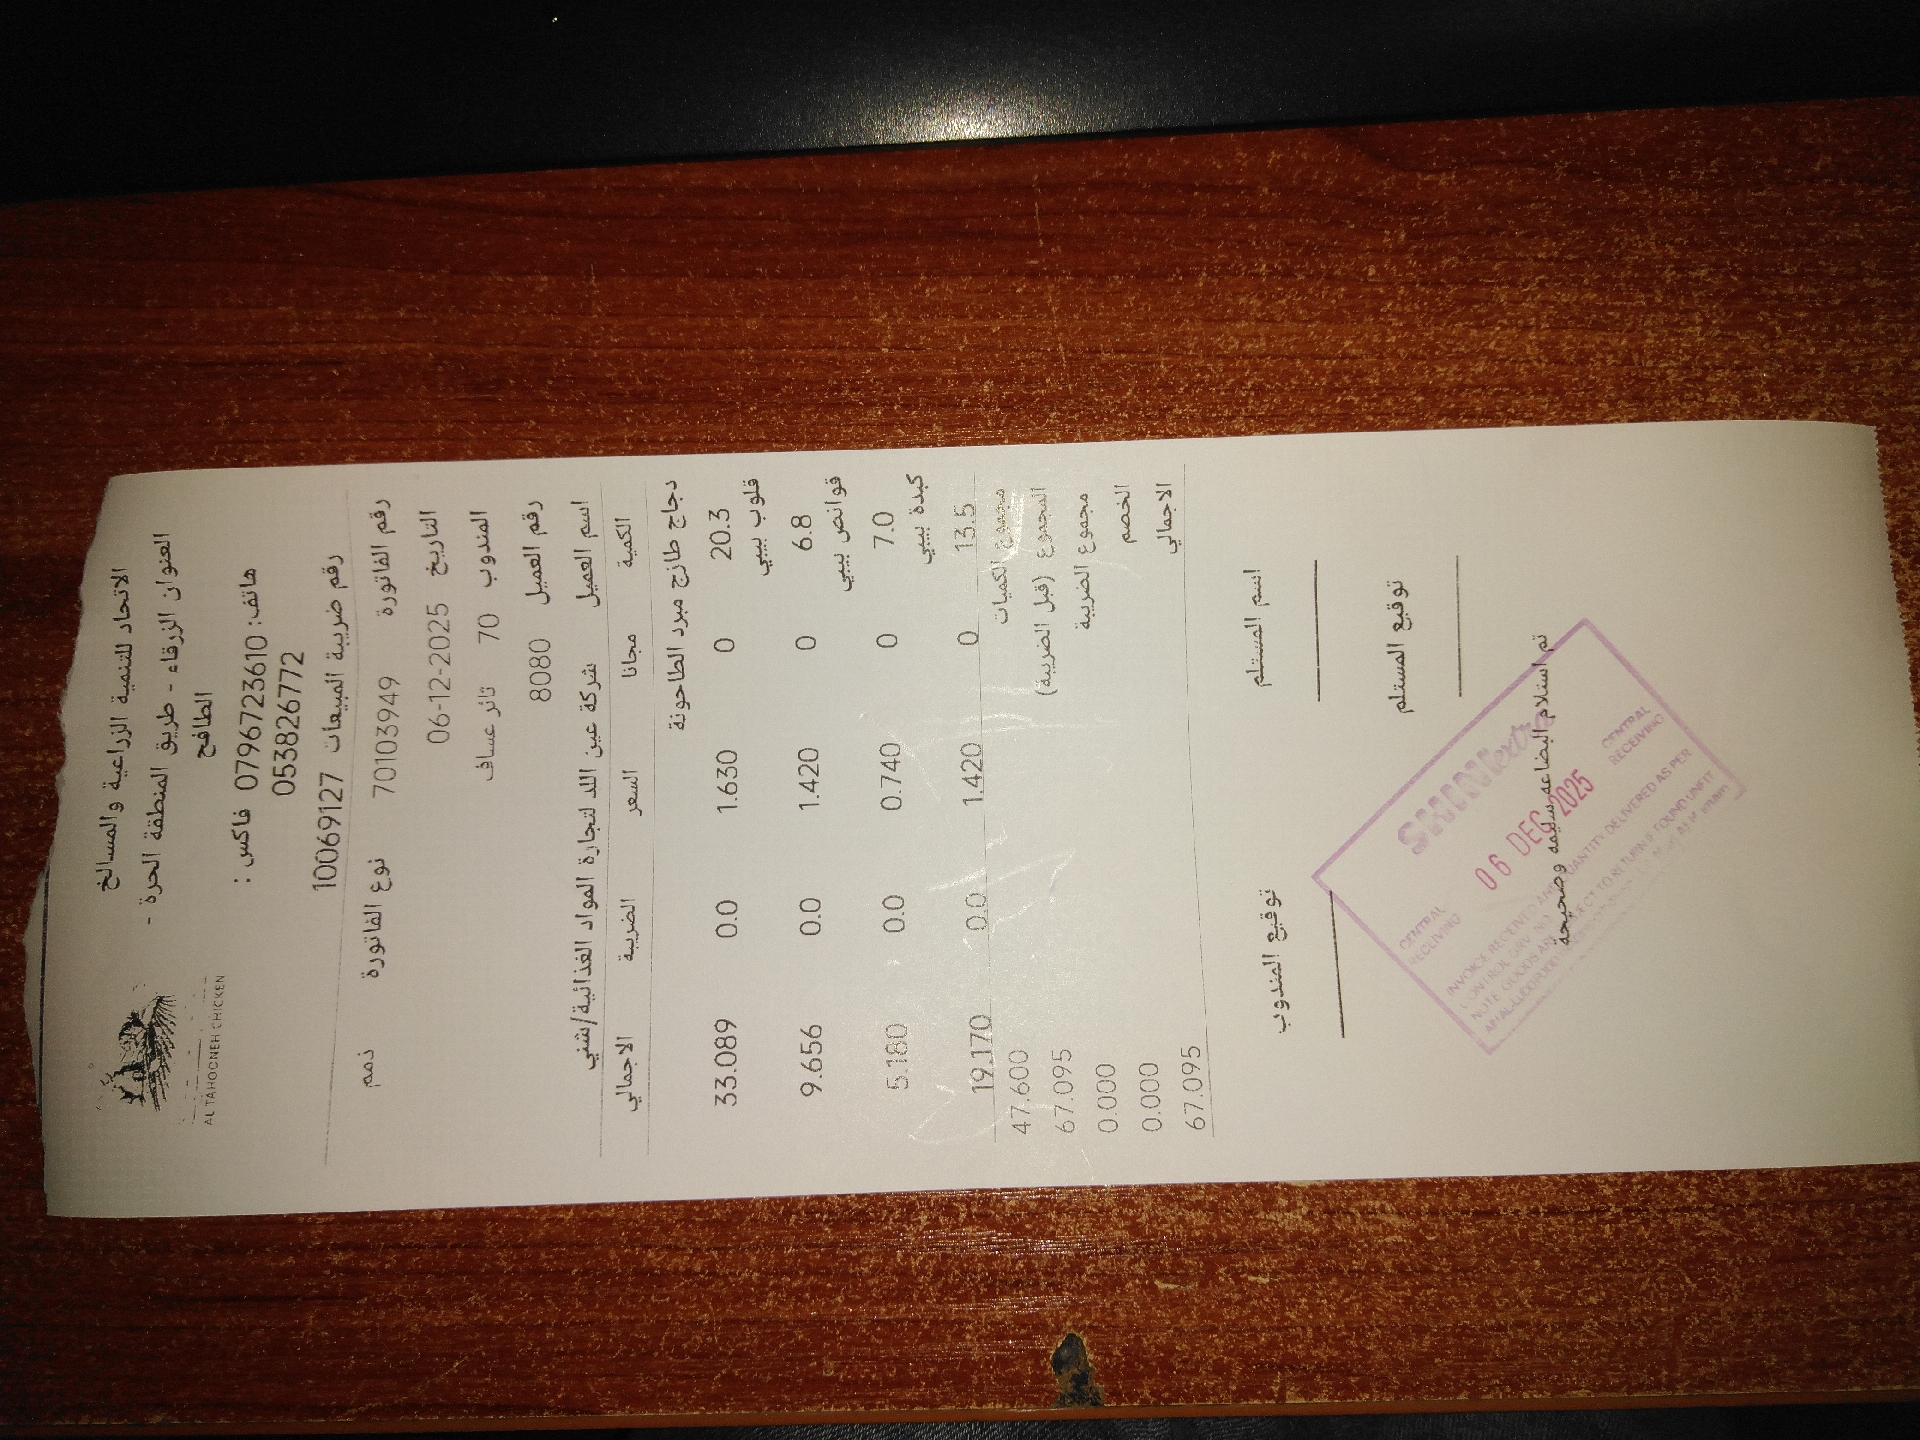 الاتحاد للتنمية الزراعية والمسالخ
العنوان الزرقاء - طريق المنطقة الحرة -
الطافح
هاتف: 0796723610 فاكس :
053826772
رقم ضريبة المبيعات 10069127
AL TAHOONEH CHICKEN
رقم الفاتورة 70103949 نوع الفاتورة ذمم
التاريخ 06-12-2025
المندوب 70 ثائر عساف
رقم العميل 8080
اسم العميل شركة عين اللد لتجارة المواد الغذائية/شني
الكمية مجانا السعر الضريبة الاجمالي
دجاج طازج مبرد الطاحونة
20.3 0 1.630 0.0 33.089
قلوب بيبي
6.8 0 1.420 0.0 9.656
قوانص بيبي
7.0 0 0.740 0.0 5.180
كبدة بيبي
13.5 0 1.420 0.0 19.170
مجموع الكميات 47.600
المجموع (قبل الضريبة) 67.095
مجموع الضريبة 0.000
الخصم 0.000
الاجمالي 67.095
اسم المستلم توقيع المندوب
توقيع المستلم
تم استلام البضاعه سليمه وصحيحة
CENTRAL RECEIVING
06 DEC 2025
CENTRAL RECEIVING
INVOICE RECEIVED AND QUANTITY DELIVERED AS PER
CONTROL GRV. NO
NOTE GOODS ARE SUBJECT TO RETURN IF FOUND UNFIT